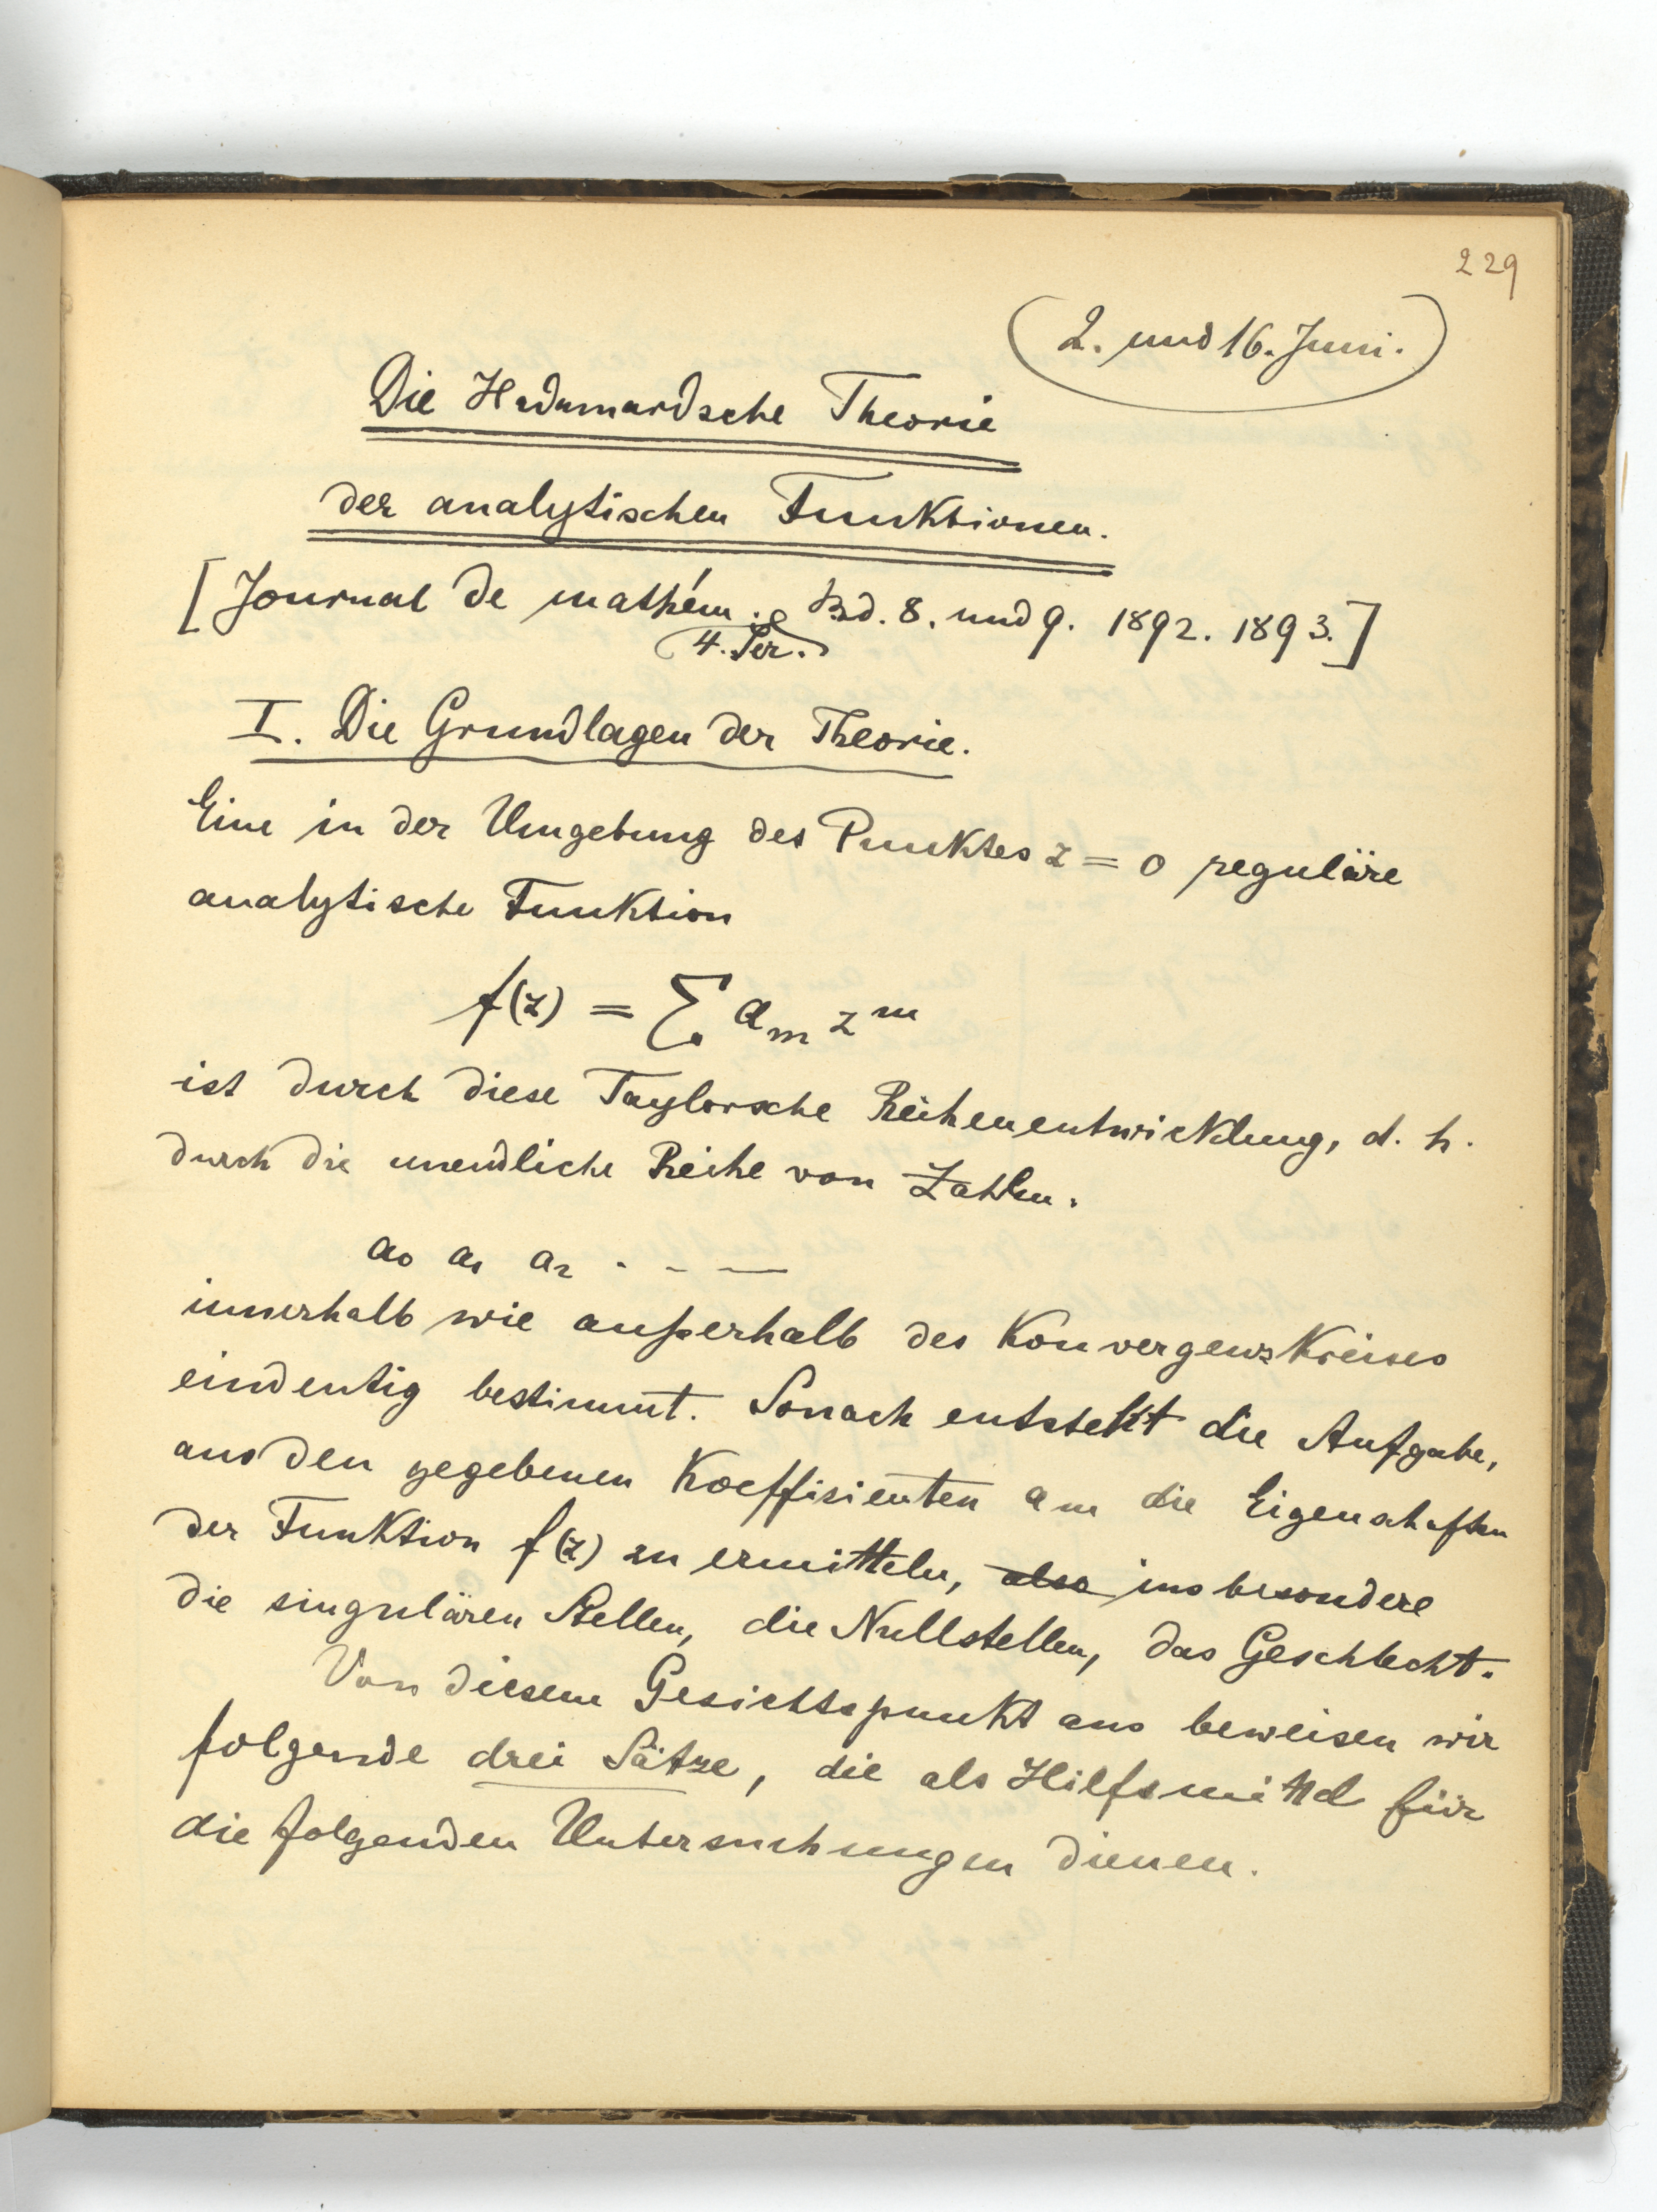 229
(2. und 16. Juni.)
Die Hadamardsche Theorie
der analytischen Funktionen.
[Journal de mathém. Bd. 8. und 9. 1892. 1893.]
4. Ser.
I. Die Grundlagen der Theorie.
Eine in der Umgebung des Punktes z = 0 reguläre
analytische Funktion
f(z) = ∑ aₘ zᵐ
ist durch diese Taylorsche Reihenentwicklung, d. h.
durch die unendliche Reihe von Zahlen.
a₀ a₁ a₂ . - - —
innerhalb wie außerhalb des Konvergenzkreises
eindeutig bestimmt. Sonach entsteht die Aufgabe,
aus den gegebenen Koeffizienten aₘ die Eigenschaften
der Funktion f(z) zu ermitteln, also insbesondere
die singulären Stellen, die Nullstellen, das Geschlecht.
Von diesem Gesichtspunkt aus beweisen wir
folgende drei Sätze, die als Hilfsmittel für
die folgenden Untersuchungen dienen.